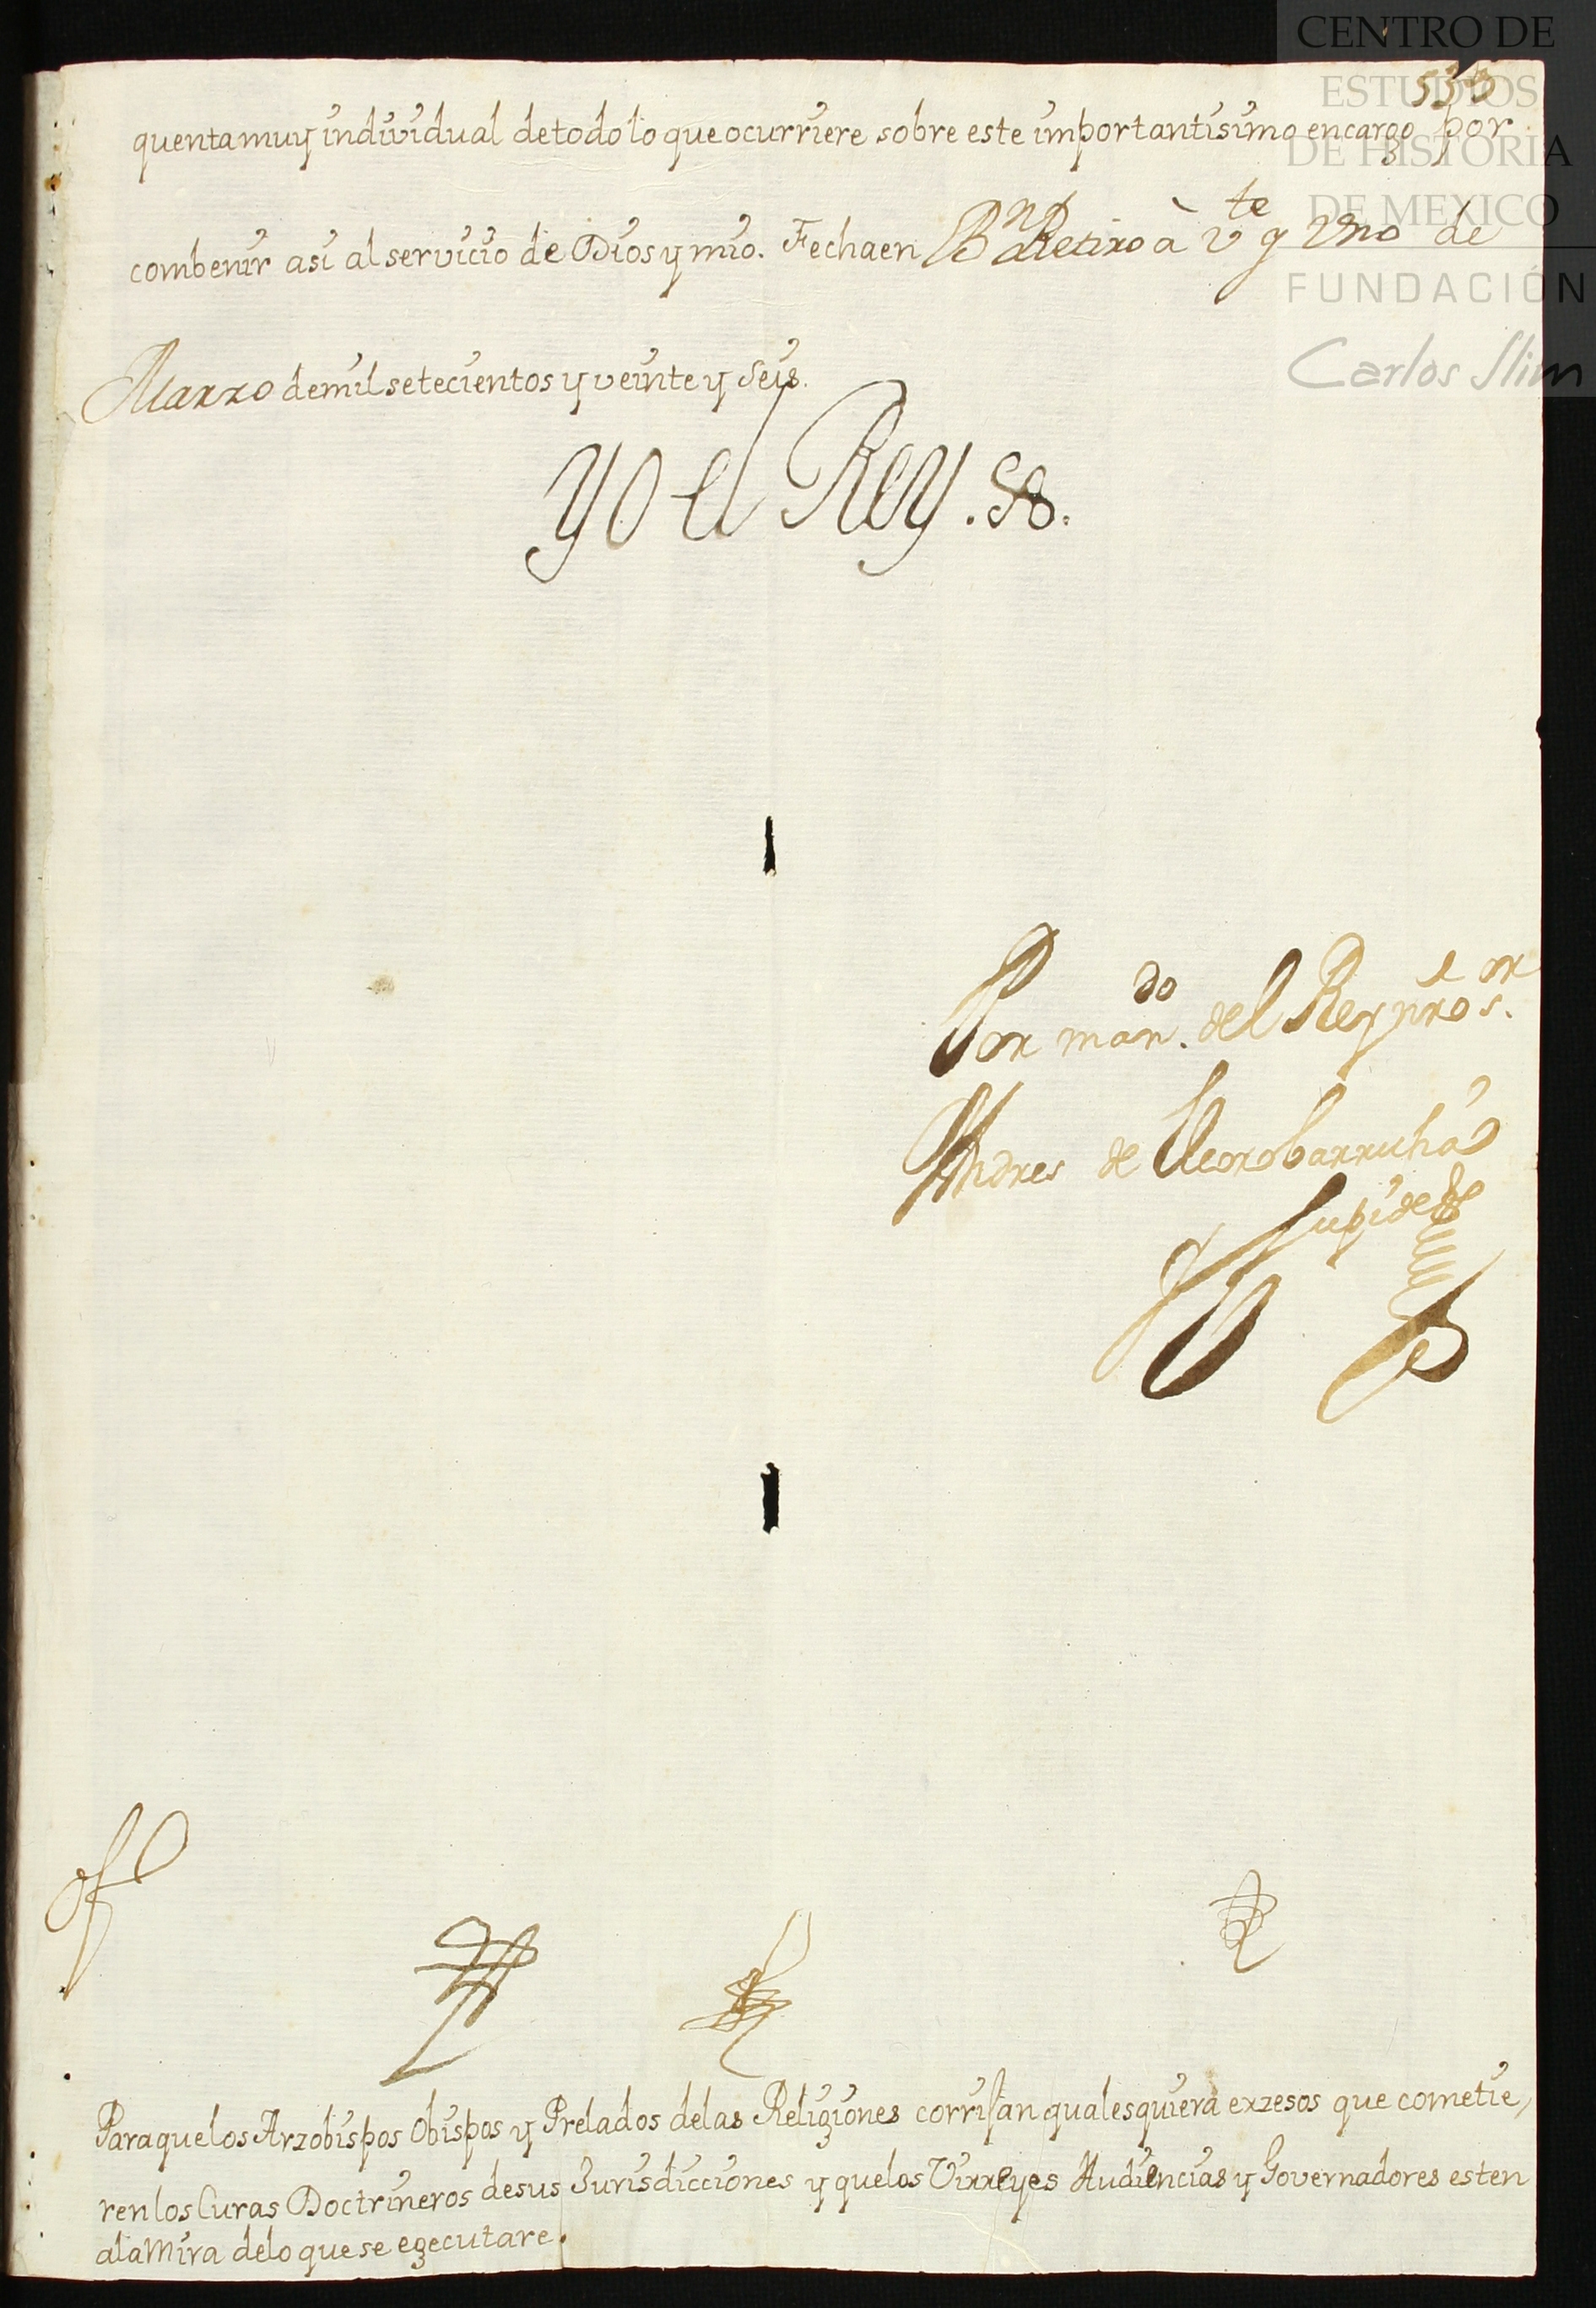 CENTRO DE
ESTUDIOS
DE HISTORIA
DE MEXICO
FUNDACIÓN
Carlos Slim
quenta muy individual de todo lo que ocurriere sobre este importantisimo encargo por
combenir asi al servicio de Dios y mio. Fecha en Bn Retiro à vte y Uno de
Marzo de mil setecientos y veinte y seis.
Yo el Rey.
Por mando. del Rey nro sor.
Andres de Elcorobarrutia
y Zupide
Para que los Arzobispos Obispos y Prelados de las Religiones corrijan qualesquiera exzesos que cometie,
ren los Curas Doctrineros de sus Jurisdicciones y que los Virreyes Audiencias y Governadores esten
a la Mira de lo que se egecutare.